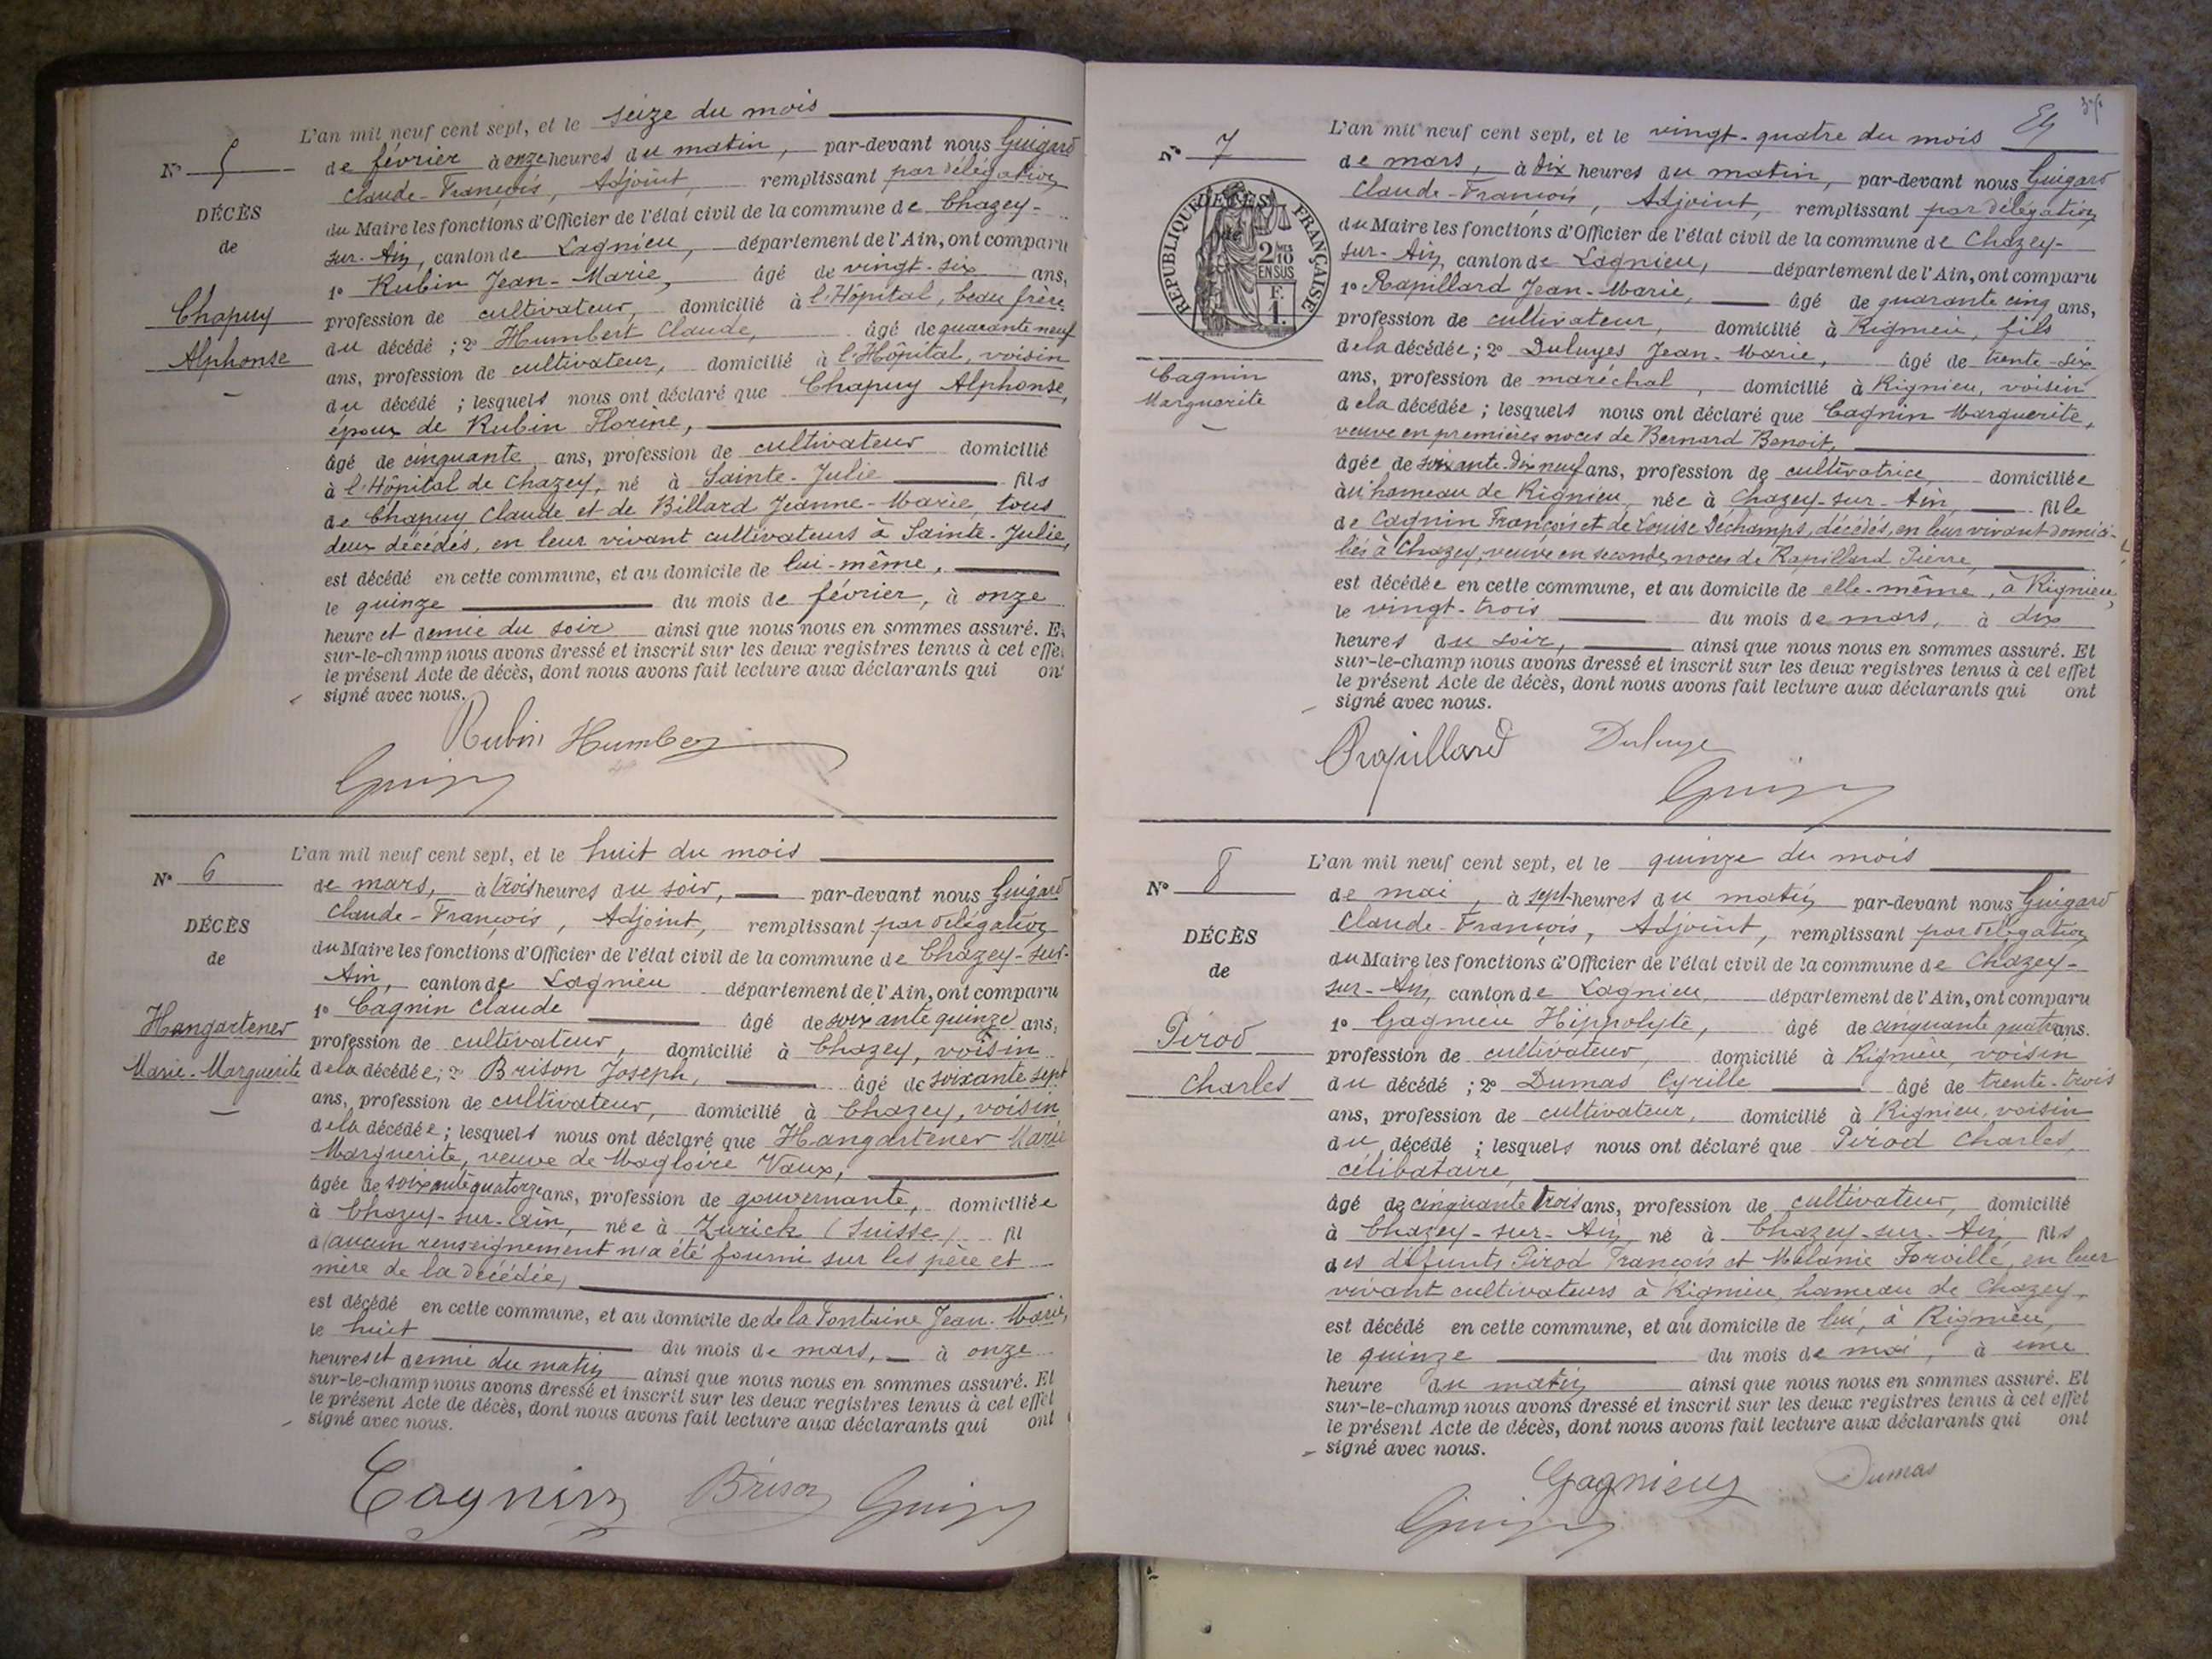 L'an mil neuf cent sept, et le seize du mois
N° 5
de février à onze heures du matin, par-devant nous Guigard
Claude-François, Adjoint, remplissant par délégation
DÉCÈS
du Maire les fonctions d'Officier de l'état civil de la commune de Chazey-
de
sur-Ain, canton de Lagnieu, département de l'Ain, ont comparu
1° Rubin Jean-Marie, âgé de vingt-six ans,
Chapuy
profession de cultivateur, domicilié à l'Hôpital, beau frère
du décédé ; 2° Humbert Claude, âgé de quarante neuf
Alphonse
ans, profession de cultivateur, domicilié à l'Hôpital, voisin
du décédé ; lesquels nous ont déclaré que Chapuy Alphonse,
époux de Rubin Florine,
âgé de cinquante ans, profession de cultivateur domicilié
à l'Hôpital de Chazey, né à Sainte-Julie fils
de Chapuy Claude et de Billard Jeanne-Marie, tous
deux décédés, en leur vivant cultivateurs à Sainte-Julie,
est décédé en cette commune, et au domicile de lui-même,
le quinze du mois de février, à onze
heure et demie du soir ainsi que nous nous en sommes assuré. E
sur-le-champ nous avons dressé et inscrit sur les deux registres tenus à cet effe
le présent Acte de décès, dont nous avons fait lecture aux déclarants qui on
signé avec nous.
Rubin Humbert
Guigard
L'an mil neuf cent sept, et le huit du mois
N° 6
de mars, à trois heures du soir, par-devant nous Guigard
Claude-François, Adjoint, remplissant par délégation
DÉCÈS
du Maire les fonctions d'Officier de l'état civil de la commune de Chazey-sur-
de
Ain, canton de Lagnieu département de l'Ain, ont comparu
1° Cagnin Claude âgé de soixante quinze ans,
Hangartener
profession de cultivateur, domicilié à Chazey, voisin
Marie-Marguerite
de la décédée ; 2° Brison Joseph, âgé de soixante sept
ans, profession de cultivateur, domicilié à Chazey, voisin
de la décédée ; lesquels nous ont déclaré que Hangartener Marie
Marguerite, veuve de Magloire Vaux,
âgée de soixante quatorze ans, profession de gouvernante, domiciliée
à Chazey-sur-Ain, née à Zurick (Suisse) fil
d (aucun renseignement n'a été fourni sur les père et
mère de la décédée,
est décédé en cette commune, et au domicile de de la Fontaine Jean-Marie,
le huit du mois de mars, à onze
heures et demie du matin ainsi que nous nous en sommes assuré. Et
sur-le-champ nous avons dressé et inscrit sur les deux registres tenus à cet effet
le présent Acte de décès, dont nous avons fait lecture aux déclarants qui ont
signé avec nous.
Cagnin Brison Guigard
L'an mil neuf cent sept, et le vingt-quatre du mois
N° 7
de mars, à dix heures du matin, par-devant nous Guigard
Claude-François, Adjoint, remplissant par délégation
RÉPUBLIQUE FRANÇAISE
2/10 EN SUS
F. 1.
du Maire les fonctions d'Officier de l'état civil de la commune de Chazey-
sur-Ain, canton de Lagnieu, département de l'Ain, ont comparu
1° Rapillard Jean-Marie, âgé de quarante cinq ans,
profession de cultivateur, domicilié à Rignieu, fils
de la décédée ; 2° Duluyes Jean-Marie, âgé de trente-six
Cagnin
ans, profession de maréchal, domicilié à Rignieu, voisin
Marguerite
de la décédée ; lesquels nous ont déclaré que Cagnin Marguerite,
veuve en premières noces de Bernard Benoit,
âgée de soixante-dix neuf ans, profession de cultivatrice, domiciliée
au hameau de Rignieu, née à Chazey-sur-Ain, fille
de Cagnin François et de Louise Déchamps, décédés, en leur vivant domici-
liés à Chazey, veuve en secondes noces de Rapillard Pierre,
est décédée en cette commune, et au domicile de elle-même, à Rignieu,
le vingt-trois du mois de mars, à dix
heures du soir, ainsi que nous nous en sommes assuré. Et
sur-le-champ nous avons dressé et inscrit sur les deux registres tenus à cet effet
le présent Acte de décès, dont nous avons fait lecture aux déclarants qui ont
signé avec nous.
Rapillard Duluye
Guigard
L'an mil neuf cent sept, et le quinze du mois
N° 8
de mai, à sept heures du matin par-devant nous Guigard
Claude-François, Adjoint, remplissant par délégation
DÉCÈS
du Maire les fonctions d'Officier de l'état civil de la commune de Chazey-
de
sur-Ain, canton de Lagnieu, département de l'Ain, ont comparu
1° Gagnieu Hippolyte, âgé de cinquante quatre ans.
Pirod
profession de cultivateur, domicilié à Rignieu, voisin
Charles
du décédé ; 2° Dumas Cyrille âgé de trente-trois
ans, profession de cultivateur, domicilié à Rignieu, voisin
du décédé ; lesquels nous ont déclaré que Pirod Charles,
célibataire,
âgé de cinquante trois ans, profession de cultivateur, domicilié
à Chazey-sur-Ain né à Chazey-sur-Ain, fils
des défunts Pirod François et Mélanie Forville, en leur
vivant cultivateurs à Rignieu, hameau de Chazey,
est décédé en cette commune, et au domicile de lui, à Rignieu,
le quinze du mois de mai, à une
heure du matin ainsi que nous nous en sommes assuré. Et
sur-le-champ nous avons dressé et inscrit sur les deux registres tenus à cet effet
le présent Acte de décès, dont nous avons fait lecture aux déclarants qui ont
signé avec nous.
Gagnieu Dumas
Guigard